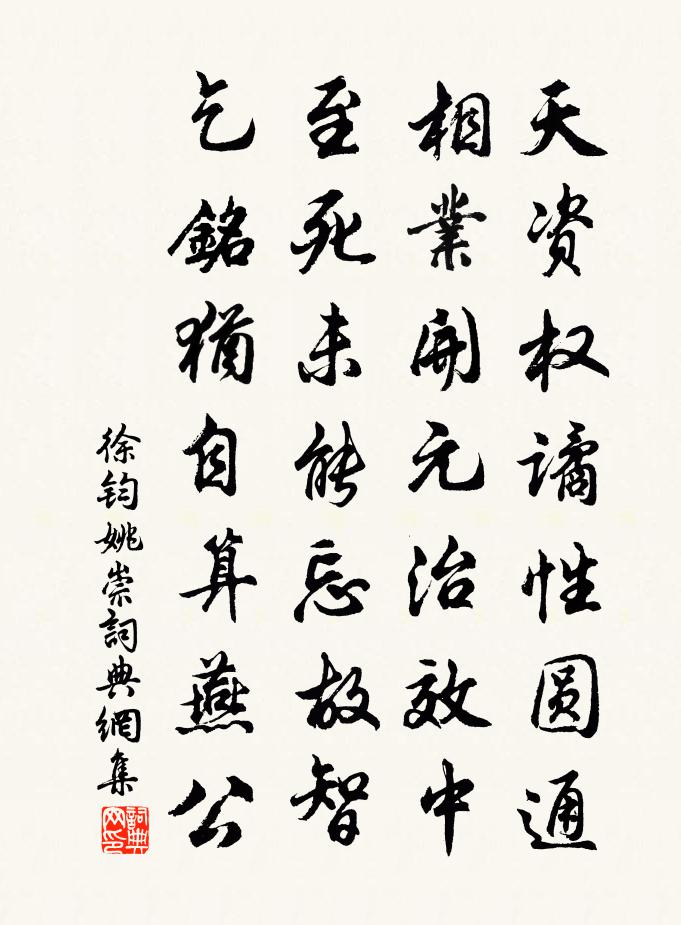 天资权谲性圆通
相業開元治效中
至死未能忘故智
乞銘猶自算燕公
徐鈞姚崇詞典網集
詞典网印